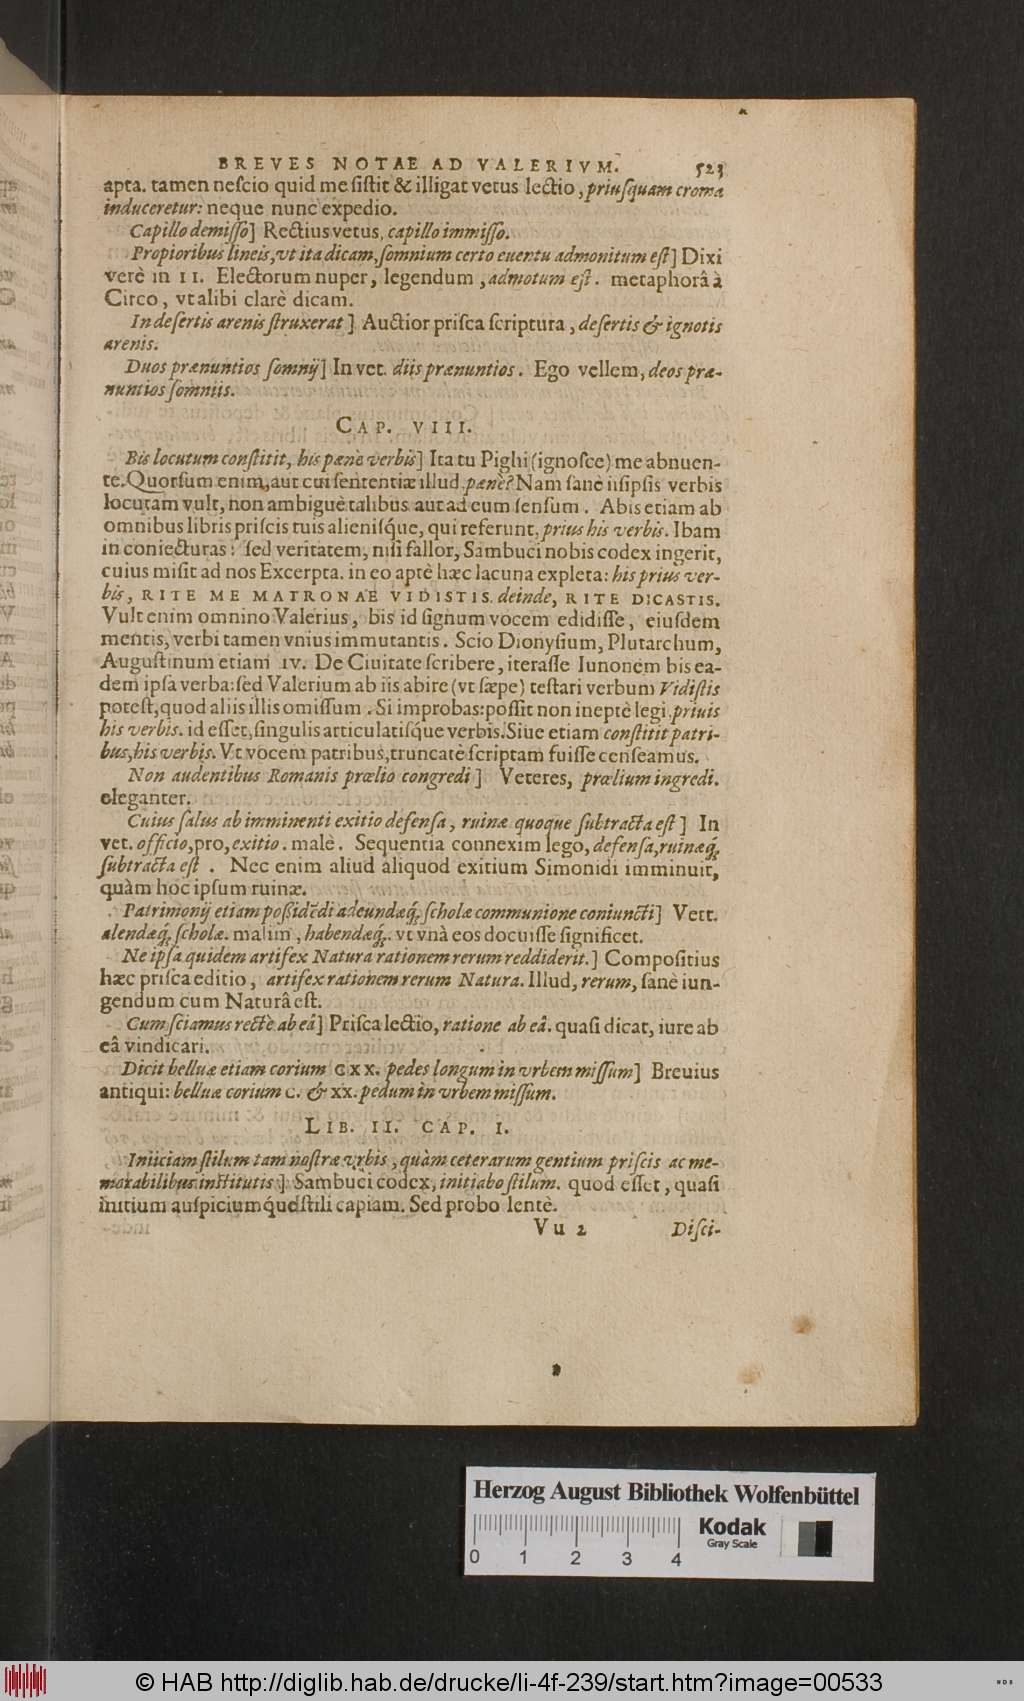 BREVES NOTAE AD VALERIVM. 523
apta. tamen neſcio quid me ſiſtit & illigat vetus lectio, priuſquam croma
induceretur: neque nunc expedio.
Capillo demiſſo] Rectius vetus, capillo immiſſo.
Propioribus lineis, vt ita dicam, ſomnium certo euentu admonitum eſt] Dixi
verè in II. Electorum nuper, legendum, admotum eſt. metaphorâ à
Circo, vt alibi clarè dicam.
In deſertis arenis ſtruxerat] Auctior priſca ſcriptura, deſertis & ignotis
arenis.
Duos prænuntios ſomnij] In vet. diis prænuntios. Ego vellem, deos præ-
nuntios ſomniis.
CAP. VIII.
Bis locutum conſtitit, his pæne verbis] Ita tu Pighi (ignoſce) me abnuen-
te. Quorſum enim, aut cui ſententiæ illud pæne? Nam ſanè iiſipſis verbis
locutam vult, non ambiguè talibus aut ad eum ſenſum. Abis etiam ab
omnibus libris priſcis tuis alieniſq́ue, qui referunt, prius his verbis. Ibam
in coniecturas: ſed veritatem, niſi fallor, Sambuci nobis codex ingerit,
cuius miſit ad nos Excerpta. in eo aptè hæc lacuna expleta: his prius ver-
bis, RITE ME MATRONAE VIDISTIS. deinde, RITE DICASTIS.
Vult enim omnino Valerius, bis id ſignum vocem edidiſſe, eiuſdem
mentis, verbi tamen vnius immutantis. Scio Dionyſium, Plutarchum,
Auguſtinum etiam IV. De Ciuitate ſcribere, iteraſſe Iunonem bis ea-
dem ipſa verba: ſed Valerium ab iis abire (vt ſæpe) teſtari verbum Vidiſtis
poteſt, quod aliis illis omiſſum. Si improbas: poſſit non ineptè legi privis
his verbis. id eſſet, ſingulis articulatiſq́ue verbis. Siue etiam conſtitit patri-
bus, his verbis. Vt vocem patribus, truncatè ſcriptam fuiſſe cenſeamus.
Non audentibus Romanis prælio congredi] Veteres, prælium ingredi.
eleganter.
Cuius ſalus ab imminenti exitio defenſa, ruinæ quoque ſubtracta eſt] In
vet. officio, pro, exitio. malè. Sequentia connexim lego, defenſa, ruinæq́;
ſubtracta eſt. Nec enim aliud aliquod exitium Simonidi imminuit,
quàm hoc ipſum ruinæ.
Patrimonij etiam poſſidēdi adeundæq́; ſcholæ communione coniuncti] Vett.
alendæq́; ſcholæ. malim, habendæq́;. vt vnà eos docuiſſe ſignificet.
Ne ipſa quidem artifex Natura rationem rerum reddiderit.] Compoſitius
hæc priſca editio, artifex rationem rerum Natura. Illud, rerum, ſanè iun-
gendum cum Naturâ eſt.
Cum ſciamus rectè ab eâ] Priſca lectio, ratione ab eâ. quaſi dicat, iure ab
eâ vindicari.
Dicit belluæ etiam corium CXX. pedes longum in vrbem miſſum] Breuius
antiqui: belluæ corium C. & XX. pedum in vrbem miſſum.
LIB. II. CAP. I.
Iniiciam ſtilum tam noſtræ vrbis, quàm ceterarum gentium priſcis ac me-
morabilibus inſtitutis] Sambuci codex, initiabo ſtilum. quod eſſet, quaſi
initium auſpiciumq́ue ſtili capiam. Sed probo lentè.
Vu 2 Diſci-
Herzog August Bibliothek Wolfenbüttel
Kodak
Gray Scale
0 1 2 3 4
© HAB http://diglib.hab.de/drucke/li-4f-239/start.htm?image=00533